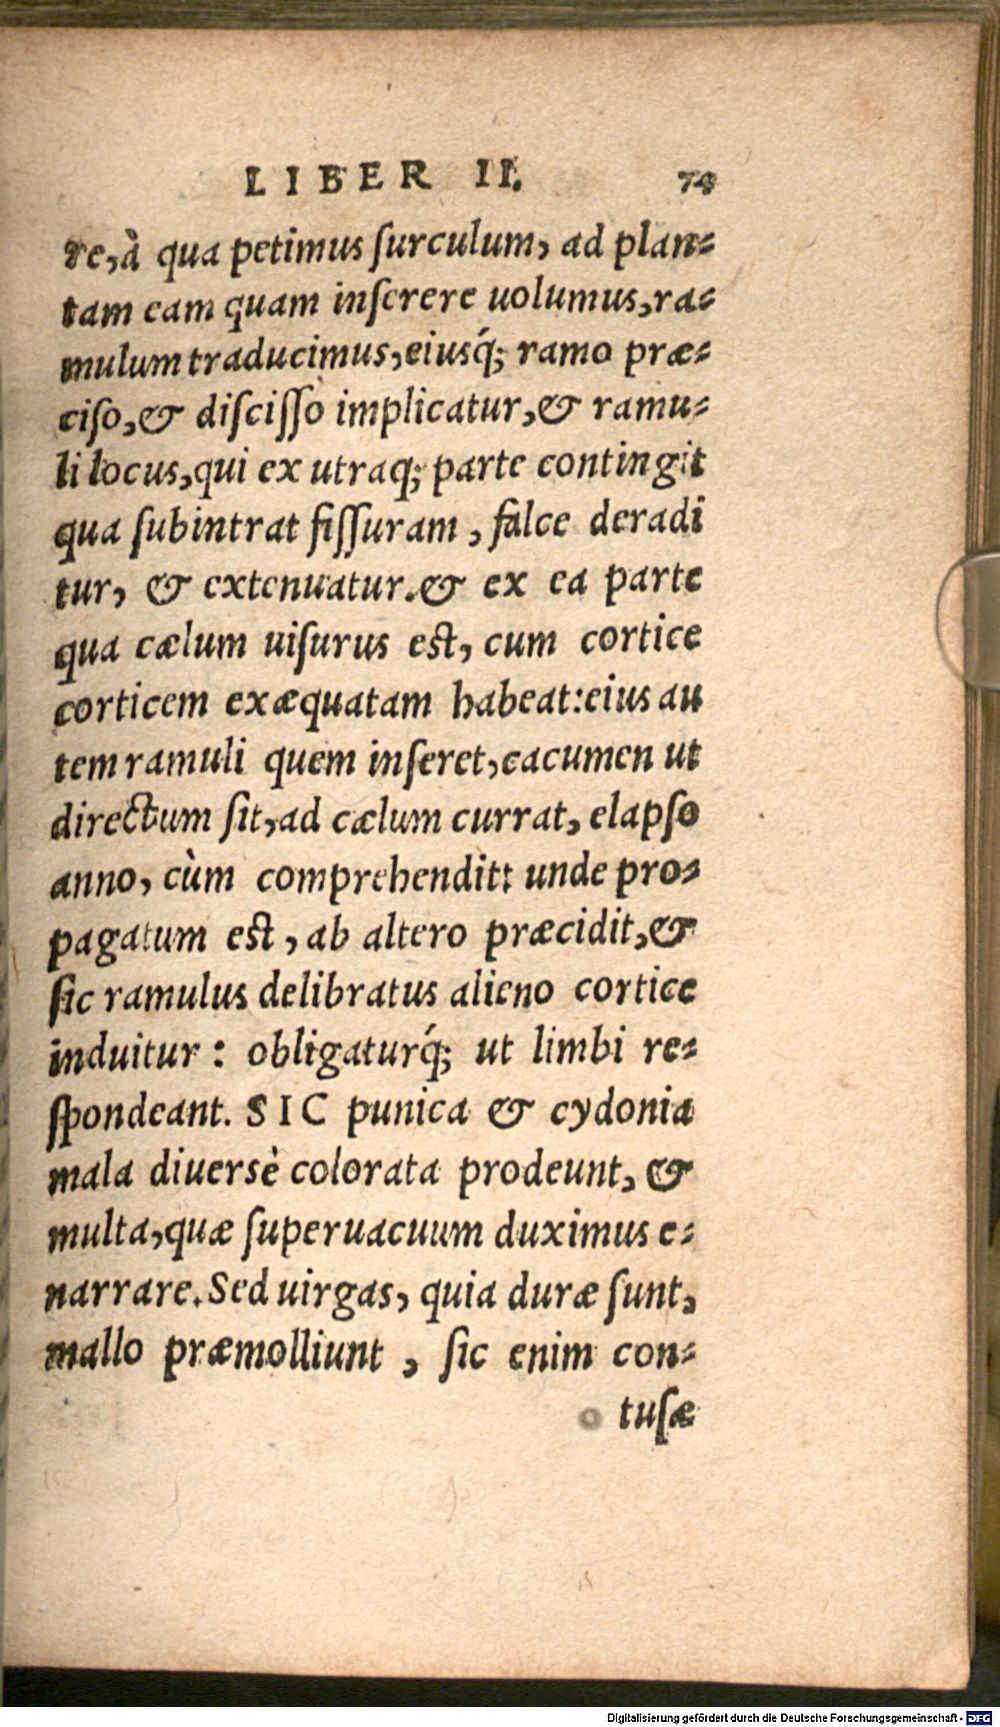 LIBER II. 74
re, à qua petimus ſurculum, ad plan-
tam eam quam inſerere uolumus, ra-
mulum traducimus, eiusq́; ramo præ-
ciſo, & diſciſſo implicatur, & ramu-
li locus, qui ex utraq; parte contingit
qua ſubintrat fiſſuram, falce deradi
tur, & extenuatur. & ex ea parte
qua cælum uiſurus est, cum cortice
corticem exæquatam habeat: eius au
tem ramuli quem inſeret, cacumen ut
directum ſit, ad cælum currat, elapſo
anno, cùm comprehendit: unde pro-
pagatum est, ab altero præcidit, &
ſic ramulus delibratus alieno cortice
induitur: obligaturq́; ut limbi re-
ſpondeant. SIC punica & cydonia
mala diuersè colorata prodeunt, &
multa, quæ ſuperuacuum duximus e-
narrare. Sed uirgas, quia duræ ſunt,
mallo præmolliunt, ſic enim con-
tuſæ
Digitalisierung gefördert durch die Deutsche Forschungsgemeinschaft - DFG